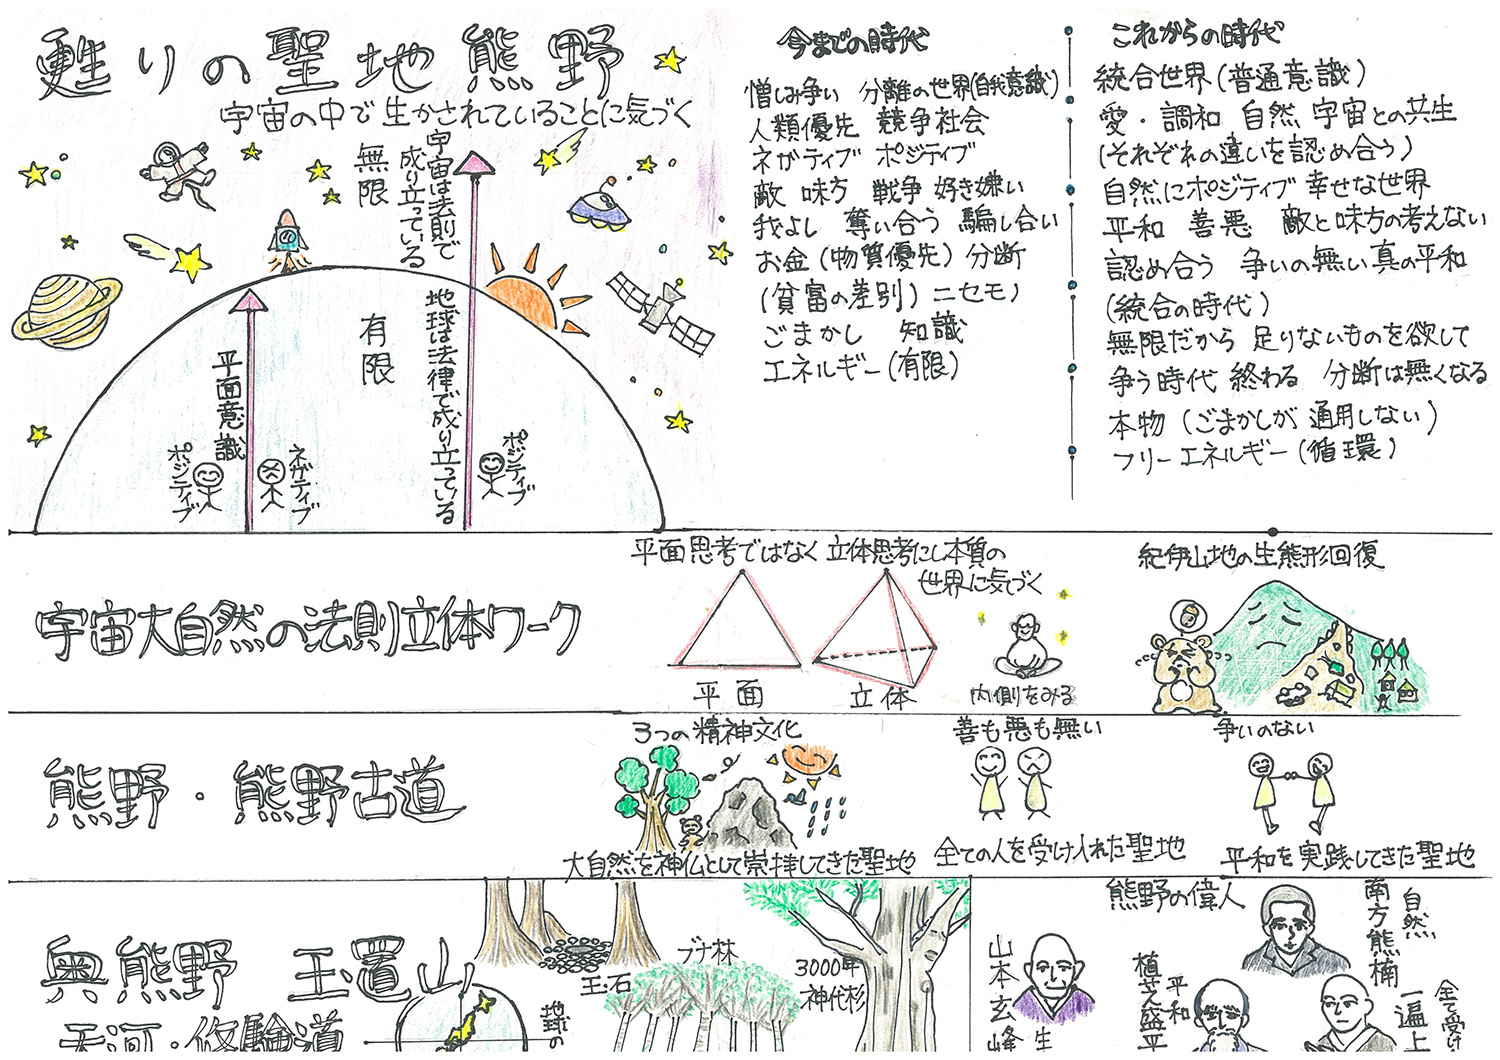 甦りの聖地熊野
宇宙の中で生かされていることに気づく
無限
宇宙は法則で
成り立っている
有限
地球は法律で成り立っている
平面意識
ポジティブ
ネガティブ
ポジティブ
今までの時代
憎しみ争い 分離の世界(自我意識)
人類優先 競争社会
ネガティブ ポジティブ
敵 味方 戦争 好き嫌い
我よし 奪い合う 騙し合い
お金(物質優先)分断
(貧富の差別)ニセモノ
ごまかし 知識
エネルギー(有限)
これからの時代
統合世界(普通意識)
愛・調和 自然 宇宙との共生
(それぞれの違いを認め合う)
自然にポジティブ 幸せな世界
平和 善悪 敵と味方の考えない
認め合う 争いの無い真の平和
(統合の時代)
無限だから 足りないものを欲して
争う時代 終わる 分断は無くなる
本物(ごまかしが通用しない)
フリーエネルギー(循環)
宇宙大自然の法則立体ワーク
平面思考ではなく立体思考にし本質の
世界に気づく
平面
立体
内側をみる
紀伊山地の生態形回復
熊野・熊野古道
3つの精神文化
大自然を神仏として崇拝してきた聖地
善も悪も無い
全ての人を受け入れた聖地
争いのない
平和を実践してきた聖地
奥熊野 玉置山
天河・修験道
地球の
玉石
ブナ林
3000年
神代杉
熊野の偉人
山本玄峰
生
植芝盛平
平和
南方熊楠
自然
一遍上
全て受け